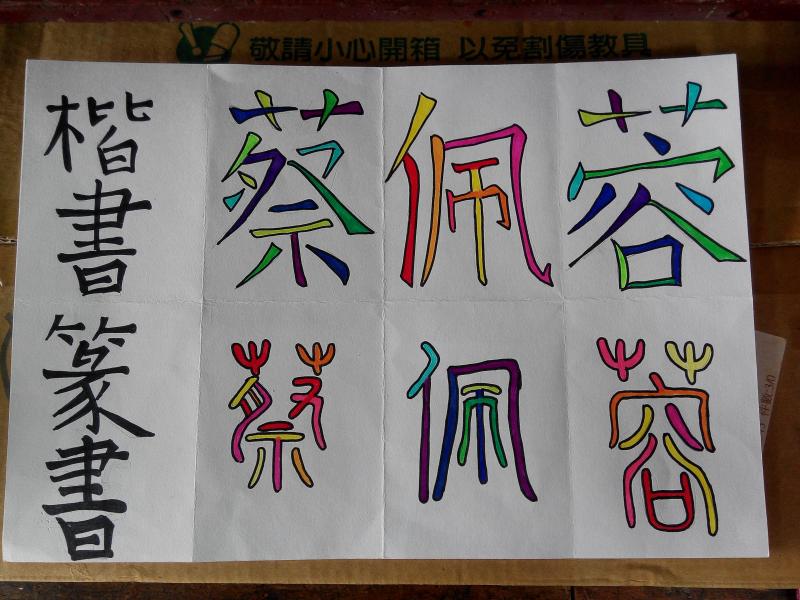 敬請小心開箱 以免割傷教具
楷書 蔡佩蓉
篆書 蔡佩蓉